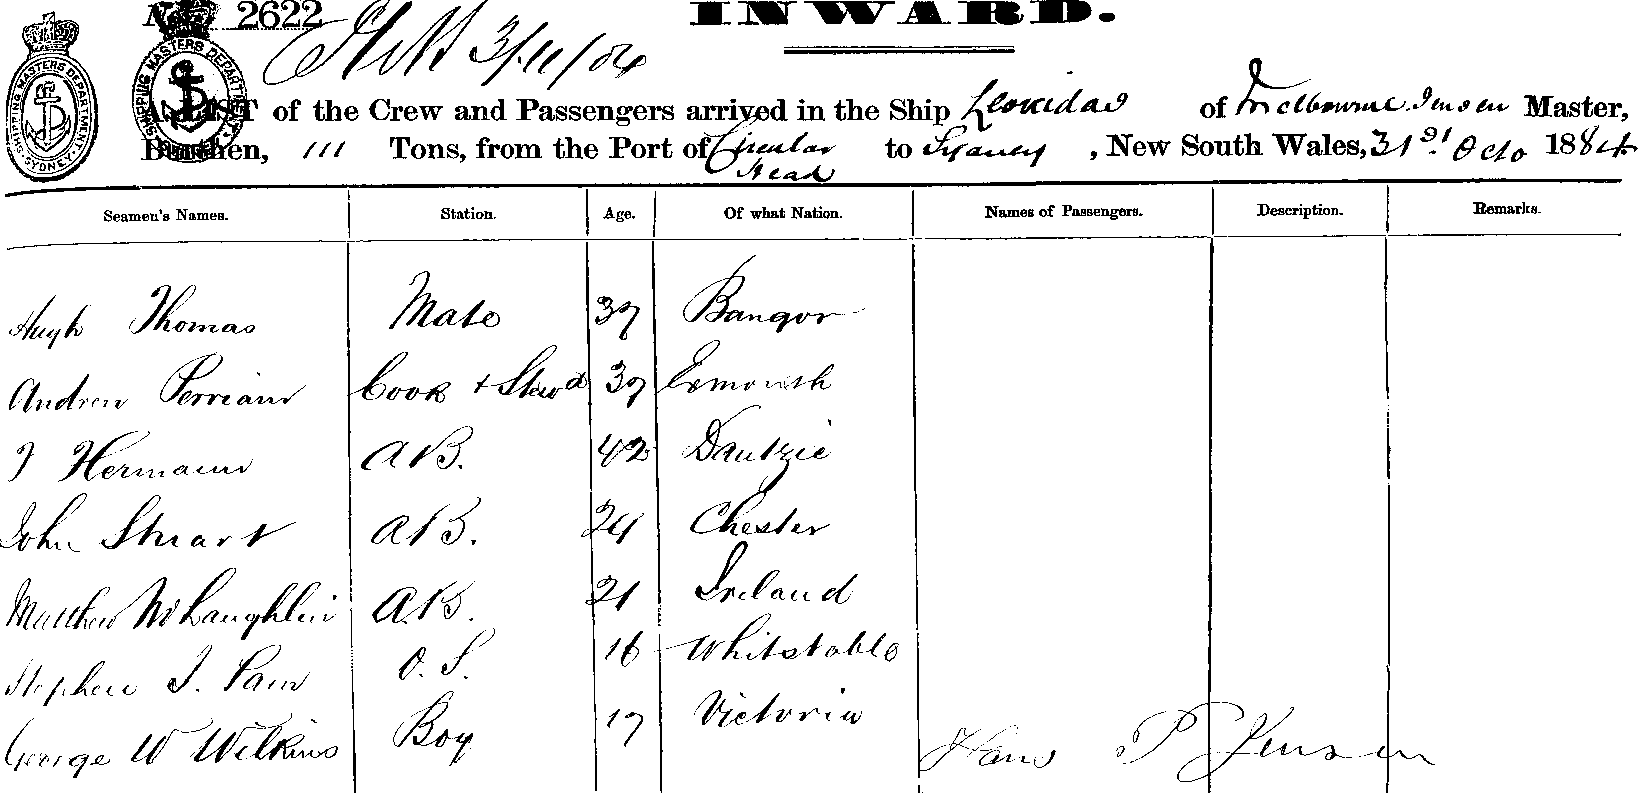 No. 2622
INWARD.
SHIPPING MASTERS DEPARTMENT SYDNEY
A LIST of the Crew and Passengers arrived in the Ship Leonidas of Melbourne Jensen Master,
Burthen, 111 Tons, from the Port of Circular Head to Sydney, New South Wales, 31st Octo 1884
Seamen's Names. Station. Age. Of what Nation. Names of Passengers. Description. Remarks.
Hugh Thomas Mate 37 Bangor
Andrew Perriam Cook + Stewd 37 Exmouth
J Hermann AB. 42 Dantzic
John Stuart AB. 24 Chester
Matthew McLaughlin A.B. 21 Ireland
Stephen J. Pain O.S. 16 Whitstable
George W Wilkins Boy 17 Victoria
Hans P Jensen